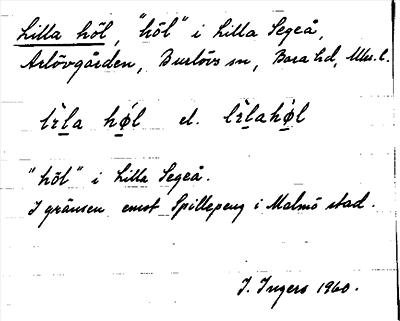 Lilla höl, "höl" i Lilla Segeå,
Arlövgården, Burlövs sn, Bara hd, Mlm. l.
lìla hǿl el. lìlahǿl
"höl" i Lilla Segeå.
I gränsen emot Spillepeng i Malmö stad.
I. Ingers 1960.